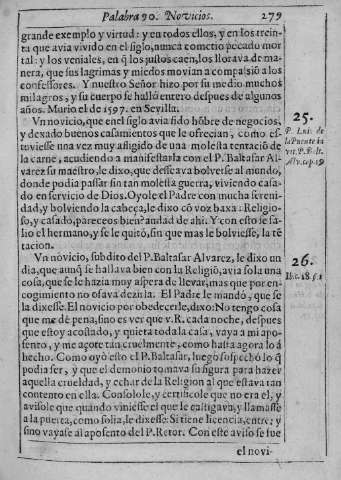 Palabra 90. Novicios. 279
grande exemplo y virtud: y en todos ellos, y en los trein-
ta que avia vivido en el siglo, nunca cometio pecado mor
tal: y los veniales, en q̃ los justos caen, los llorava de ma-
nera, que sus lagrimas y miedos movian a compasió a los
confessores. Y nuestro Señor hizo por su medio muchos
milagros, y su cuerpo se halló entero despues de algunos
años. Murio el de 1597. en Sevilla.
Vn novicio, que en el siglo avia sido hõbre de negocios,
y dexado buenos casamientos que le ofrecian, como es-
tuviesse una vez muy afligido de una molesta tentació de
la carne, acudiendo a manifestarla con el P. Baltasar Al-
varez su maestro, le dixo, que desseava bolverse al mundo,
donde podia passar sin tan molesta guerra, viviendo casa-
do en servicio de Dios. Oyole el Padre con mucha sereni-
dad, y bolviendo la cabeça, le dixo có voz baxa: Religio-
so, y casado, pareceos bien? andad de ahi. Y con esto se sa-
lio el hermano, y se le quitó, sin que mas le bolviesse, la tẽ
tacion.
Vn novicio, subdito del P. Baltasar Alvarez, le dixo un
dia, que aunq̃ se hallava bien con la Religió, avia sola una
cosa, que se le hazia muy aspera de llevar, mas que por en-
cogimiento no osava dezirla. El Padre le mandó, que se
la dixesse. El novicio por obedecerle, dixo: No tengo cosa
que me dé pena, sino es ver que v.R. cada noche, despues
que estoy acostado, y quieta toda la casa, vaya a mi apo-
sento, y me açote tan cruelmente, como hasta agora lo á
hecho. Como oyò esto el P. Baltasar, luego sospechó lo q̃
podia ser, y que el demonio tomava su figura para hazer
aquella crueldad, y echar de la Religion al que estava tan
contento en ella. Consolole, y certificóle que no era el, y
avisole que quando viniesse el que le castigava, y llamasse
a la puerta, como solia, le dixesse: Si tiene licencia, entre; y
sino vayase al aposento del P. Retor. Con este aviso se fue
el novi-
25.
P. Luis de
la Puente
Alv. cap. 19
26.
Ib. c. 18. §. 1